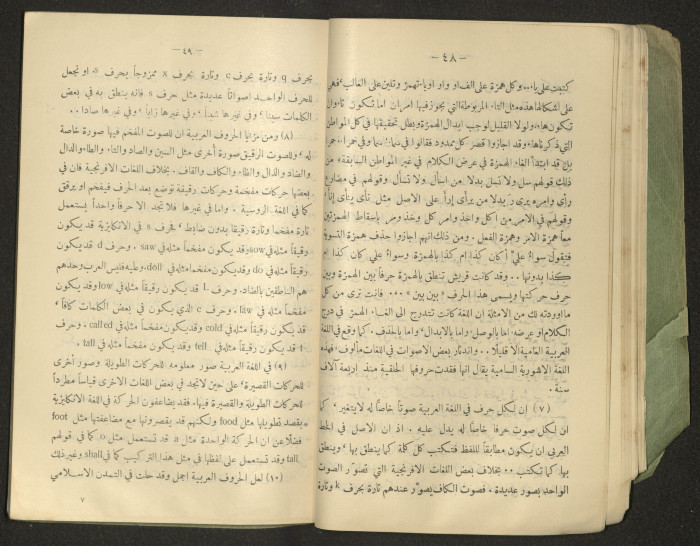 — ٤٨ —
كتبت على ياء، وكل همزة على الف او واو او ياء تهمز وتلين على الغالب، فهي
على اشكالها هذه مثل التاء المربوطة التي يجوز فيها امران اما تكون تاء وان
تكون هاء، ولولا القليل لوجب ابدال الهمزة وبطل تحقيقها في كل المواطن
التي ذكرناها، وقد اجازوا قصر كل ممدود فقالوا في بناء: بنا وفي حمراء: حمرا
بل قد ابتدأ الغاء الهمزة في عرض الكلام في غير المواطن السابقة، من
ذلك قولهم سل ولا تسل بدلا من اسأل ولا تسأل، وقولهم في مضارع
رأى وامره يرى ر بدلا من يرأى إرأ على الاصل مثل نأى ينأى إنأ،
وقولهم في الامر من اكل واخذ وامر كل وخذ ومر باسقاط الهمزتين
معاً همزة الامر وهمزة الفعل . ومن ذلك انهم اجازوا حذف همزة التسوية
فتقول سواء عليّ أكان كذا ام كذا بالهمزة . وسواء علي كان كذا ام
كذا بدونها . . وقد كانت قريش تنطق بالهمزة حرفاً بين الهمزة وبين
حرف حركتها ويسمى هذا الحرف « بين بين » . . . فانت ترى من كل
ما اوردته لك من الامثلة ان اللغة كانت تتدرج الى الغاء الهمزة في درج
الكلام او عرضه اما بالوصل، واما بالابدال، واما بالحذف . كما وقع في اللغة
العربية العامية الا قليلا . . واندثار بعض الاصوات في اللغات مألوف، فهذه
اللغة الاشورية السامية يقال انها فقدت حروفها الحلقية منذ اربعة آلاف
سنة .
(٧) ان لكل حرف في اللغة العربية صوتاً خاصاً له لا يتغير، كما
ان لكل صوت حرفا خاصاً له يدل عليه . اذ ان الاصل في الخط
العربي ان يكون مطابقاً للفظ فتكتب كل كلمة كما ينطق بها، وينطق
بها كما تكتب . . بخلاف بعض اللغات الافرنجية التي تصوّر الصوت
الواحد بصور عديدة . فصوت الكاف يصوّر عندهم تارة بحرف k وتارة
— ٤٩ —
بحرف q وتارة بحرف c وتارة بحرف x ممزوجاً بحرف s. او تجعل
للحرف الواحد اصواتاً عديدة مثل حرف s فانه ينطق به في بعض
الكلمات سيناً، وفي غيرها شيناً، وفي غيرها زاياً، وفي غيرها صادا . .
(٨) ومن مزايا الحروف العربية ان للصوت المفخم فيها صورة خاصة
له، وللصوت الرقيق صورة أخرى مثل السين والصاد والتاء والطاء والدال
والضاد والذال والظاء والكاف والقاف . بخلاف اللغات الافرنجية فان في
بعضها حركات مفخمة وحركات رقيقة توضع بعد الحرف فيفخم او يرقق
كما في اللغة الروسية . واما في غيرها فلا تجد الا حرفاً واحداً يستعمل
تارة مفخماً وتارة رقيقاً بدون ضابط، فحرف s في الانكليزية قد يكون
رقيقاً مثله في sow وقد يكون مفخماً مثله في saw . وحرف d قد يكون
رقيقاً مثله في do وقد يكون مفخما مثله في doll، وعليه فليس العرب وحدهم
هم الناطقين بالضاد . وحرف L قد يكون رقيقاً مثله في low وقد يكون
مفخماً مثله في law . وحرف c الذي يكون في بعض الكلمات كافاً،
قد يكون رقيقاً مثله في cold وقد يكون مفخماً مثله في called . وحرف
f قد يكون رقيقاً مثله في fell وقد يكون مفخماً مثله في tall .
(٩) في اللغة العربية صور معلومة للحركات الطويلة وصور أخرى
للحركات القصيرة، على حين لا تجد في بعض اللغات الاخرى قياساً مطرداً
للحركات الطويلة والقصيرة فيها، فقد يضاعفون الحركة في اللغة الانكليزية
بقصد تطويلها مثل food ولكنهم قد يقصرونها مع مضاعفتها مثل foot
فضلاً عن ان الحركة الواحدة مثل a قد تستعمل مثل o كما في قولهم
tall وقد تستعمل على لفظها في مثل هذا التركيب كما في shall وغير ذلك
(١٠) لعل الحروف العربية اجمل وقد حلت في التمدن الاسلامي
٧